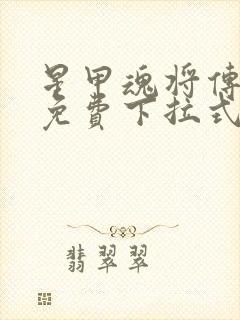 星甲魂将傳
免費下拉式
翡翠翠